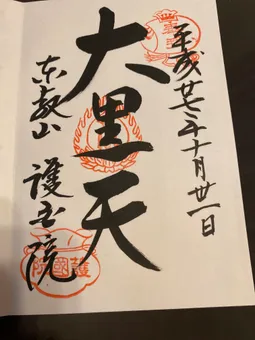 平成廿七年十月卅一日
大黒天
東叡山 護国院
護國院